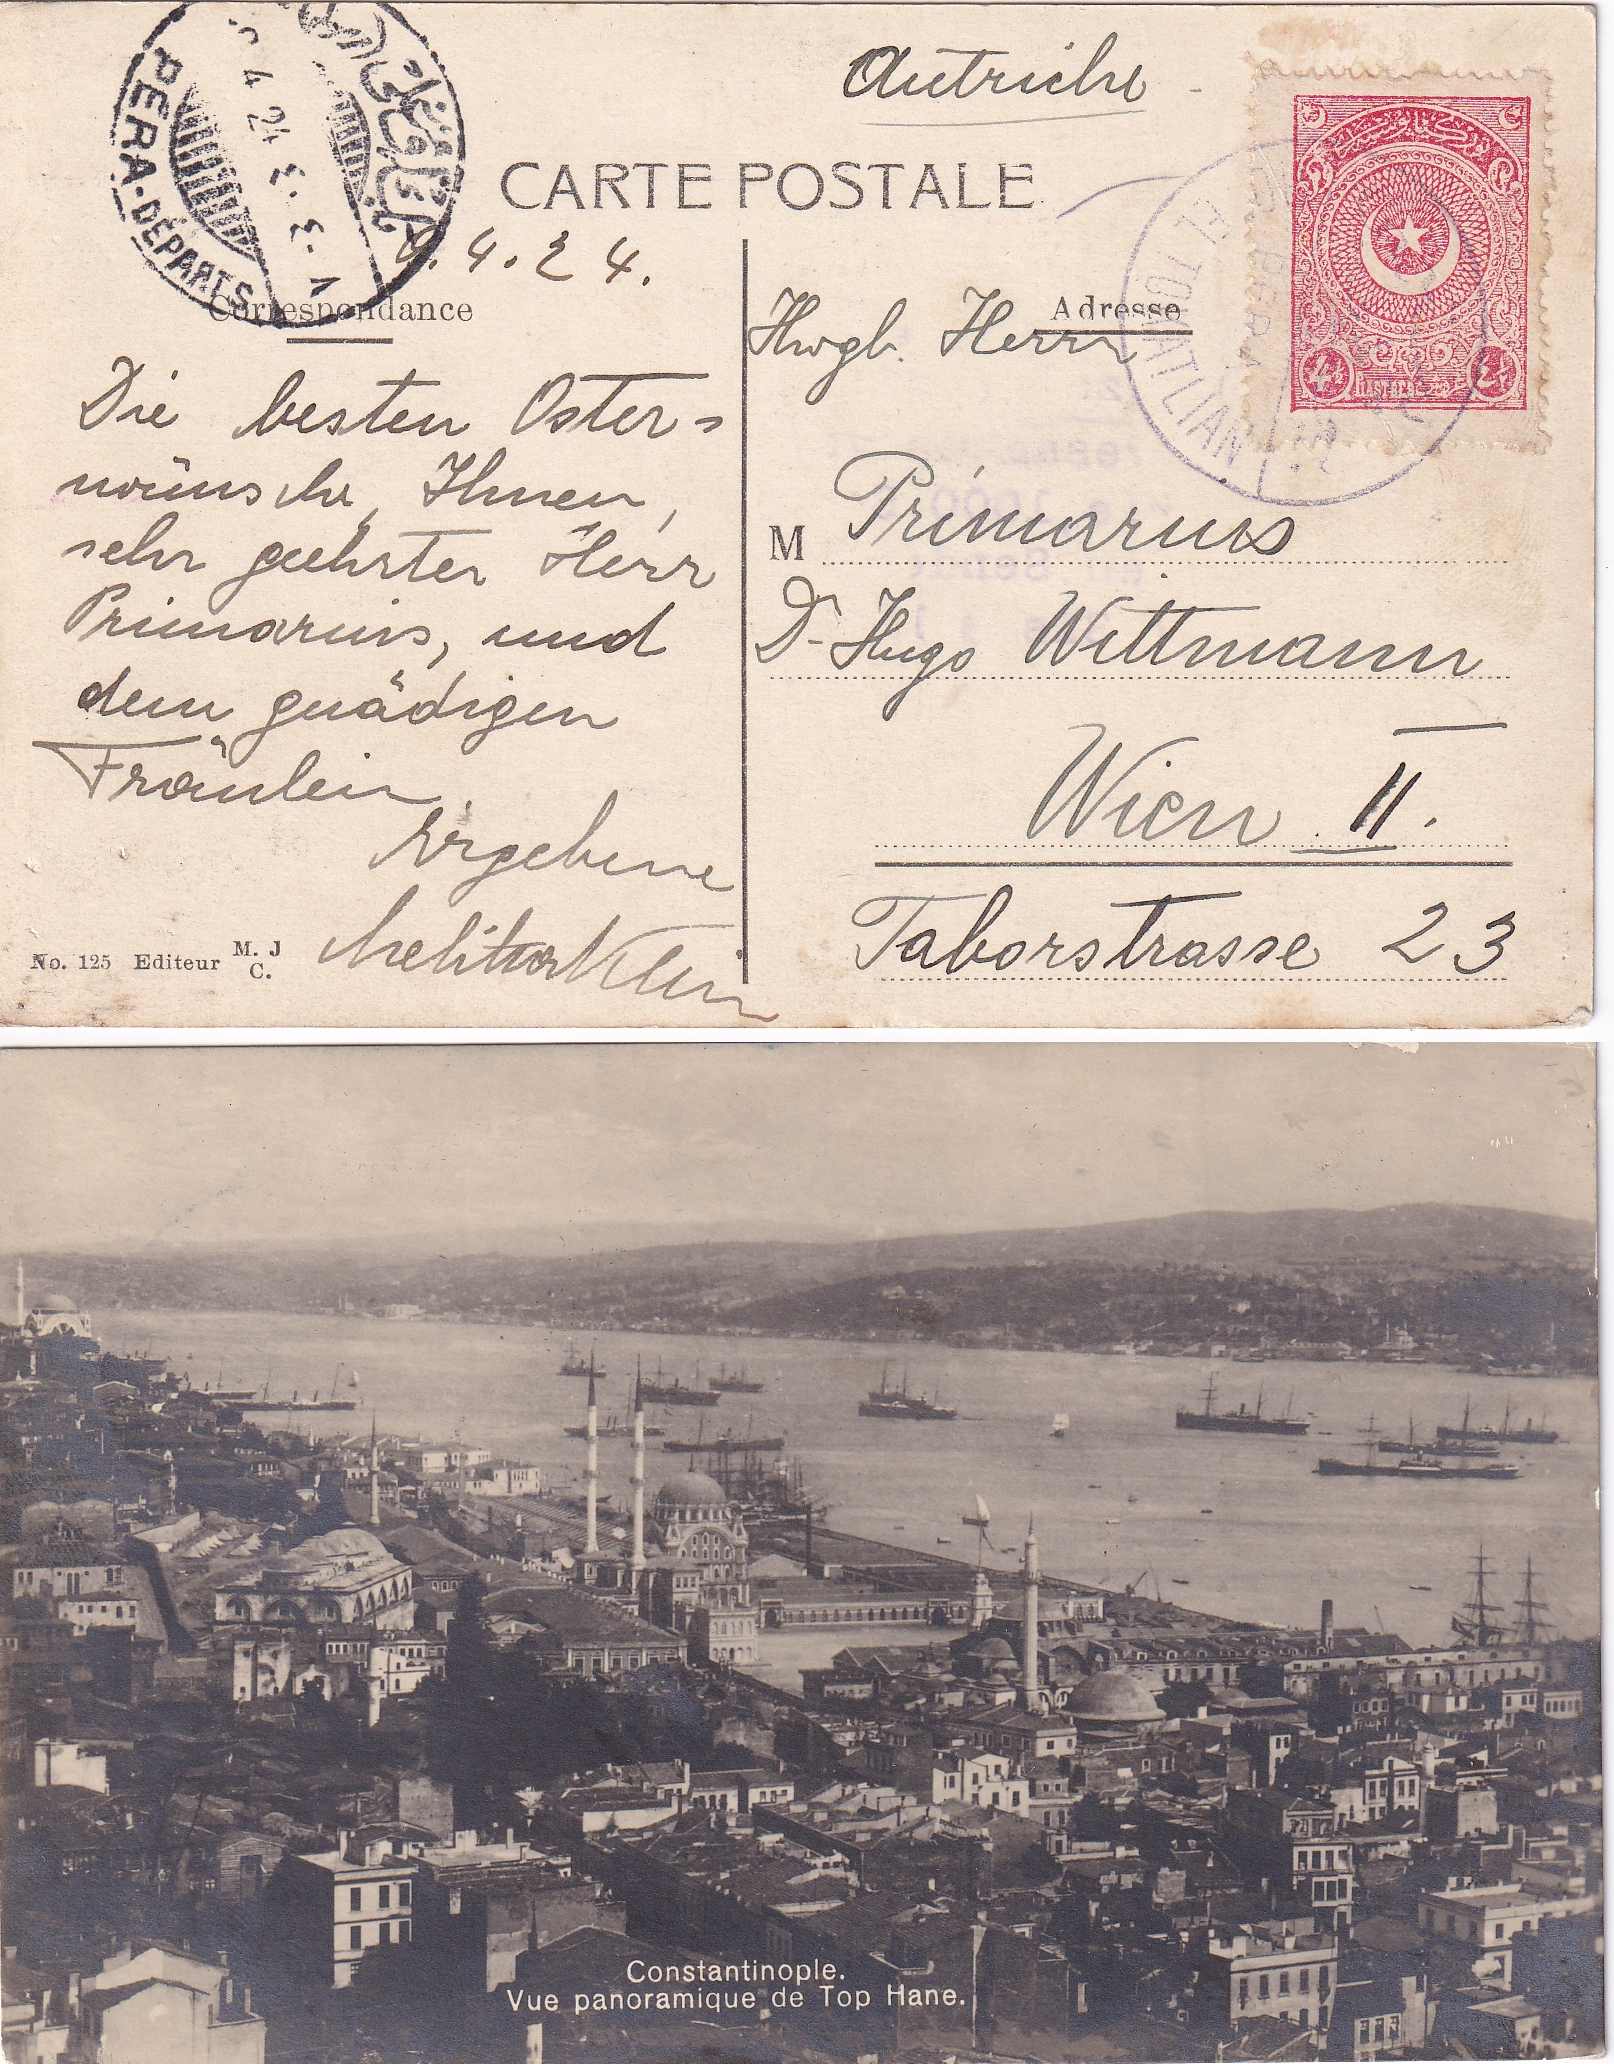 Autriche
PERA-DÉPARTS
4 24
CARTE POSTALE
9.4.24.
Correspondance
Adresse
Die besten Oster-
wünsche, Ihnen,
sehr geehrter Herr
Primarius, und
dem gnädigen
Fräulein.
Ergebene
Melitta Klein
Hwgb. Herrn
M Primarius
Dr Hugo Wittmann
Wien II.
Taborstrasse 23
TOKATLIAN
PERA
No. 125 Editeur M. J
C.
Constantinople.
Vue panoramique de Top Hane.